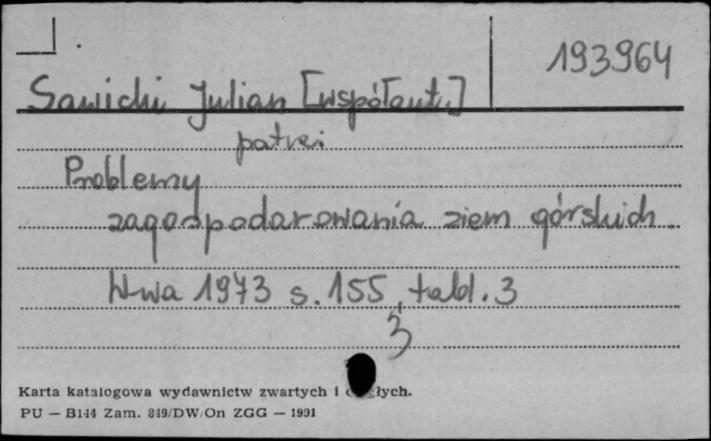 193964
Sawicki Julian [współaut.]
patrz:
Problemy
zagospodarowania ziem górskich.
W-wa 1973 s. 155, tabl. 3
3
Karta katalogowa wydawnictw zwartych i
PU — B144 Zam. 849/DW/On ZGG — 1991